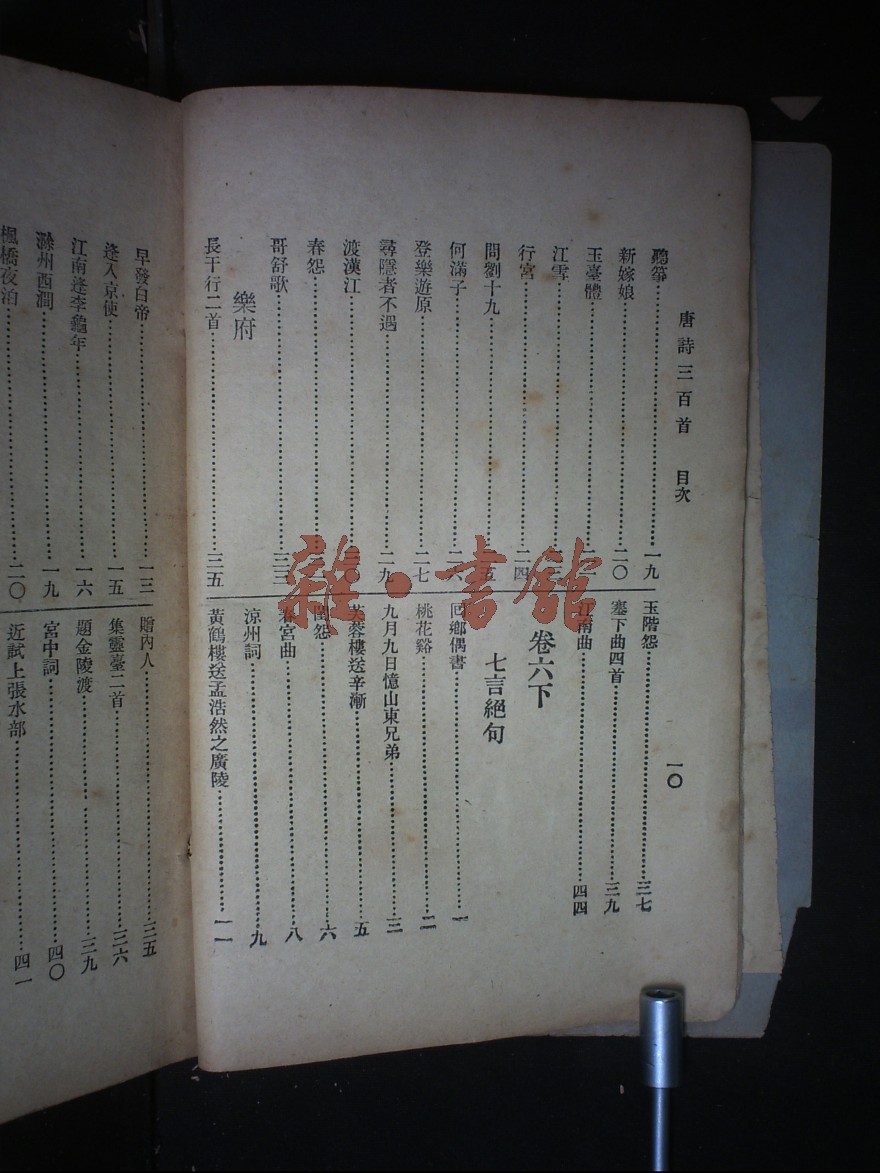 唐詩三百首 目次 一〇
聽箏 一九
新嫁娘 二〇
玉臺體
江雪
行宮 二四
問劉十九
何滿子 二六
登樂遊原 二七
尋隱者不遇 二九
渡漢江
春怨
哥舒歌 三三
樂府
長干行二首 三五
玉階怨 三七
塞下曲四首 三九
江南曲 四四
卷六下
七言絕句
囘鄉偶書 一
桃花谿 二
九月九日憶山東兄弟 三
芙蓉樓送辛漸 五
閨怨 六
春宮曲 八
涼州詞 九
黃鶴樓送孟浩然之廣陵 一一
早發白帝 一三
逢入京使 一五
江南逢李龜年 一六
滁州西澗 一九
楓橋夜泊 二〇
贈內人 三五
集靈臺二首 三六
題金陵渡 三九
宮中詞 四〇
近試上張水部 四一
雜·書館